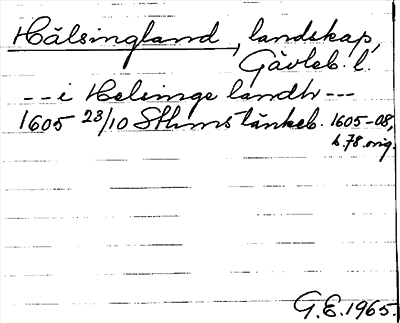 Hälsingland, landskap,
Gävleb. l.
-- i Helsinge landh ---
1605 23/10 Sthms tänkeb. 1605-08,
b. 78. orig.
G.E. 1965.